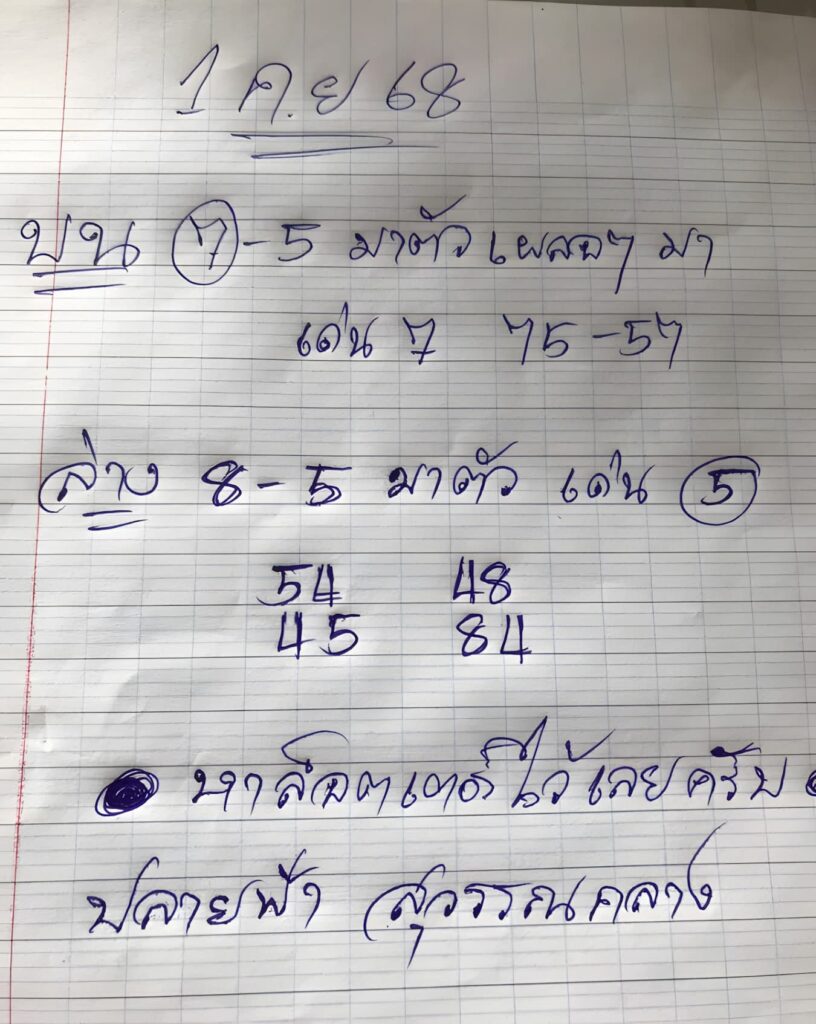 1 ก.ย 68
บน 7-5 มาตัว เผลอๆ มา
เด่น 7 75-57
ล่าง 8-5 มาตัว เด่น 5
54 48
45 84
หาล็อตเตอรี่ไว้เลยครับ
ปลายฟ้า สุวรรณกลาง